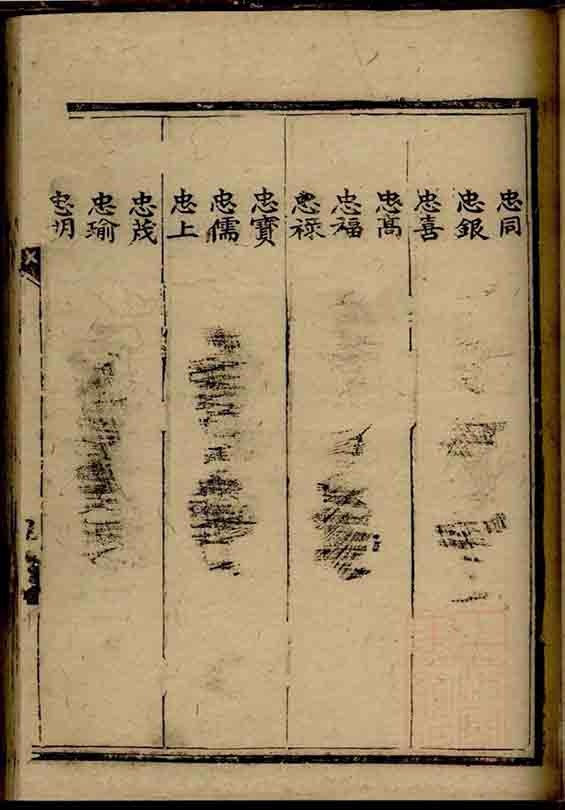 忠同
忠銀
忠喜
忠高
忠福
忠祿
忠寳
忠儒
忠上
忠茂
忠瑜
忠明